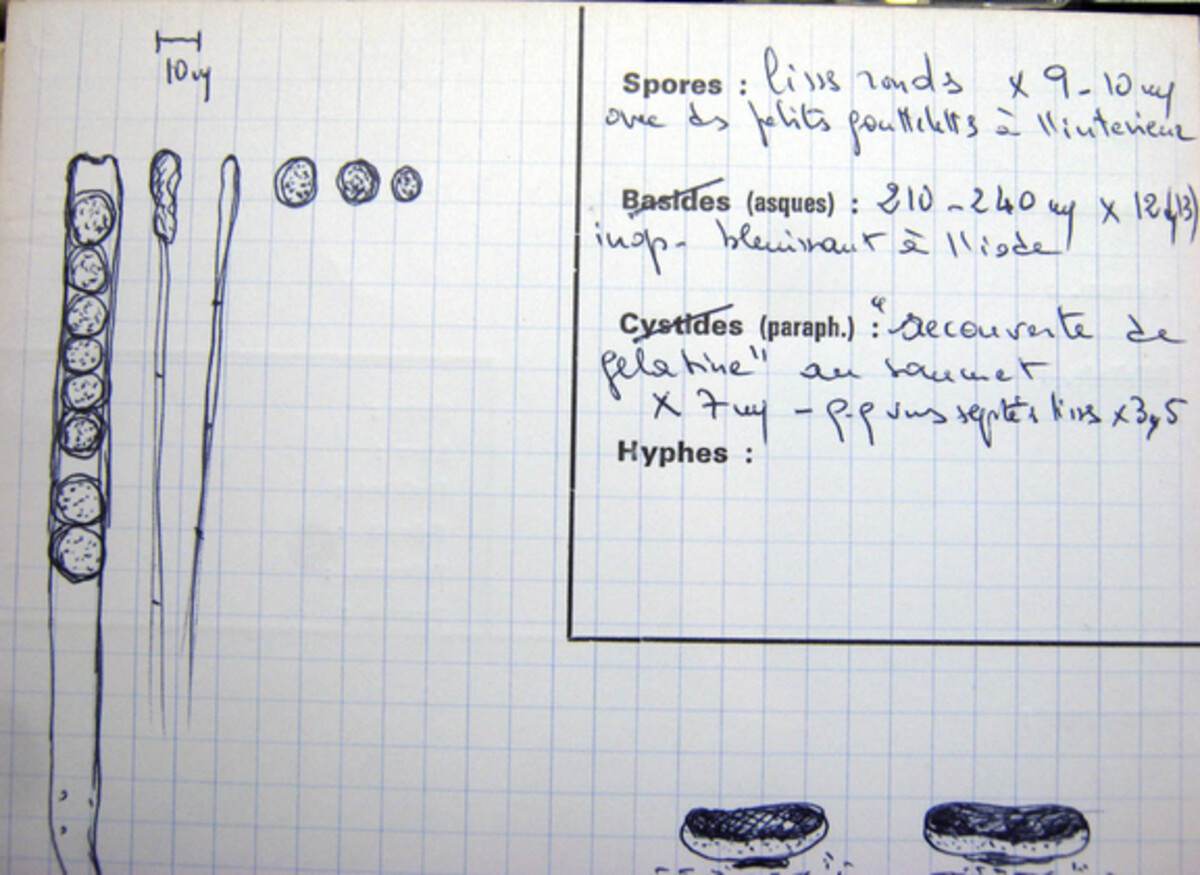 10 my
Spores : liss ronds x 9-10 my
avec ds petits gouttletts à l'interieur
Basides (asques) : 210-240 my x 12(13)
inop- bleuissant à l'iode
Cystides (paraph.) : "recouverte de
gelatine" au sommet
x 7 my - septés liss x 3,5
Hyphes :